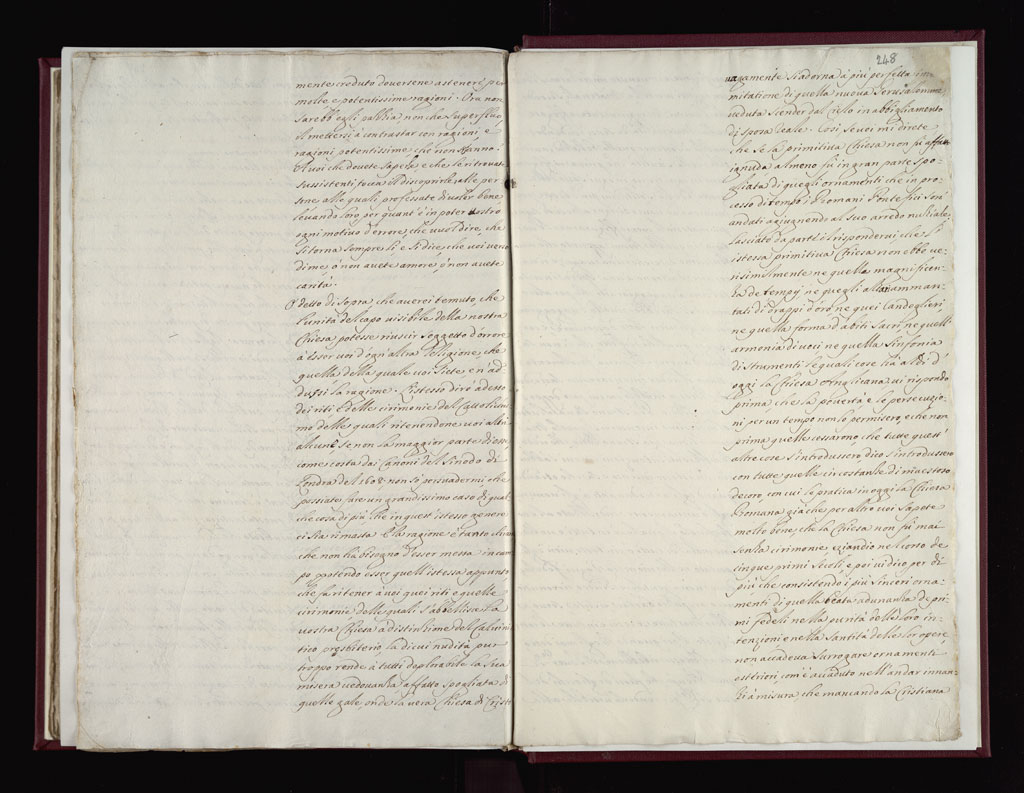 mente creduto doversene astenere per
molte, e potentissime ragioni. Ora non
sarebb'egli pallia, non che superfluo,
il mettersi à contrastar con ragioni, e
ragioni potentissime, che non s'anno.
A voi che dovete sapere, e che le ritrovate
sussistenti tocca il discoprirle alle per
sone, alle quali professate di voler bene
levando loro, per quant'è in poter vostro
ogni motivo d'errore, che vuol dire, che
si torna sempre lì e si dice, che voi verso
di me, ò non avete amore, ò non avete
carità.
O' detto di sopra, che averei temuto, che
l'unità del capo visibile della nostra
Chiesa potesse riuscir soggetto d'orrore
à esser voi d'ogn'altra Religione, che
quella della quale voi siete, e n'ad
dussi la ragione. L'istesso dirò adesso
dei riti, e delle cirimonie del Cattolicis
mo delle quali ritenendone voi altri
alcune, se non la maggior parte di esse
come costa dai Canoni del Sinodo di
Londra del 1608. non sò persuadermi, che
possiate fare un grandissimo caso di qual
che cosa di più, che in quest'istesso genere
ci sia rimasta. E la ragione è tanto chiara
che non hà bisogno d'esser messa in cam
po, potendo esser quell'istessa appunto,
che fà ritener à voi quei riti, e quelle
cirimonie, delle quali s'abbellisce la
vostra Chiesa à distinzione del Calvinis
tico presbiterio la di cui nudità pur
troppo rende à tutti deplorabile la sua
misera vedovanza affatto spogliata di
quelle gale, onde la vera Chiesa di Cristo
248
vagamente s'adorna à più perfetta im
mitazione di quella nuova Jerusalemme
veduta scender dal Cielo in abbigliamento
di sposa reale. Così se voi mi direte
che se la primitiva Chiesa non fù affatto
ignuda almeno fù in gran parte spo-
gliata di quegli ornamenti che in pro-
cesso di tempo i Romani Pontefici son
andati aggiugnendo al suo arredo nuziale.
Lasciato da parte il risponderví che l'
istessa primitiva Chiesa non ebbe ve-
risimilmente ne quella magnificen-
za de tempij ne quegli altari amman-
tati di drappi d'oro ne quei Candeglieri,
ne quella forma d'abiti sacri, ne quell'
armonia di voci ne quella sinfonia
di strumenti le quali cose hà al dì d'
oggi la Chiesa Anglicana vi rispondo
prima che la povertà e le persecuzio-
ni per un tempo non lo permisero, e che non
prima quelle cessarono che tutte quest'
altre cose s'introdussero, dico s'introdussero
con tutte quelle circostanze di maestoso
decoro, con cui le pratica in oggi la Chiesa
Romana già che per altro voi sapete
molto bene, che la Chiesa non fù mai
senza cirimonie eziandio nel corso de
cinque primi secoli, e poi vi dico per di
più che consistendo i più sinceri orna-
menti di quella beata adunanza de pri
mi fedeli nella purità delle loro in-
tenzioni e nella santità delle loro opere,
non accadeva surrogare ornamenti
esteriori, com'è accaduto nell'andar innan
zi à misura che mancando la Cristiana